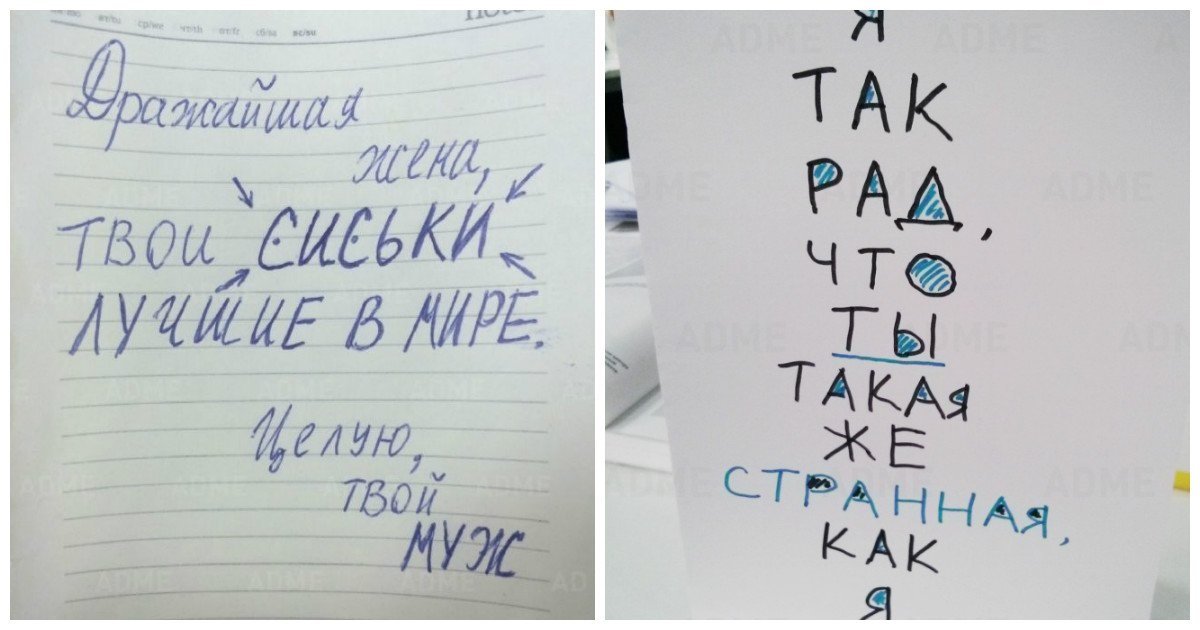 note
вт/tu ср/we чт/th пт/fr сб/sa вс/su
Дражайшая
жена,
ТВОИ СИСЬКИ
ЛУЧШИЕ В МИРЕ.
Целую,
твой
МУЖ
Я
ТАК
РАД,
ЧТО
ТЫ
ТАКАЯ
ЖЕ
СТРАННАЯ,
КАК
Я
ADME